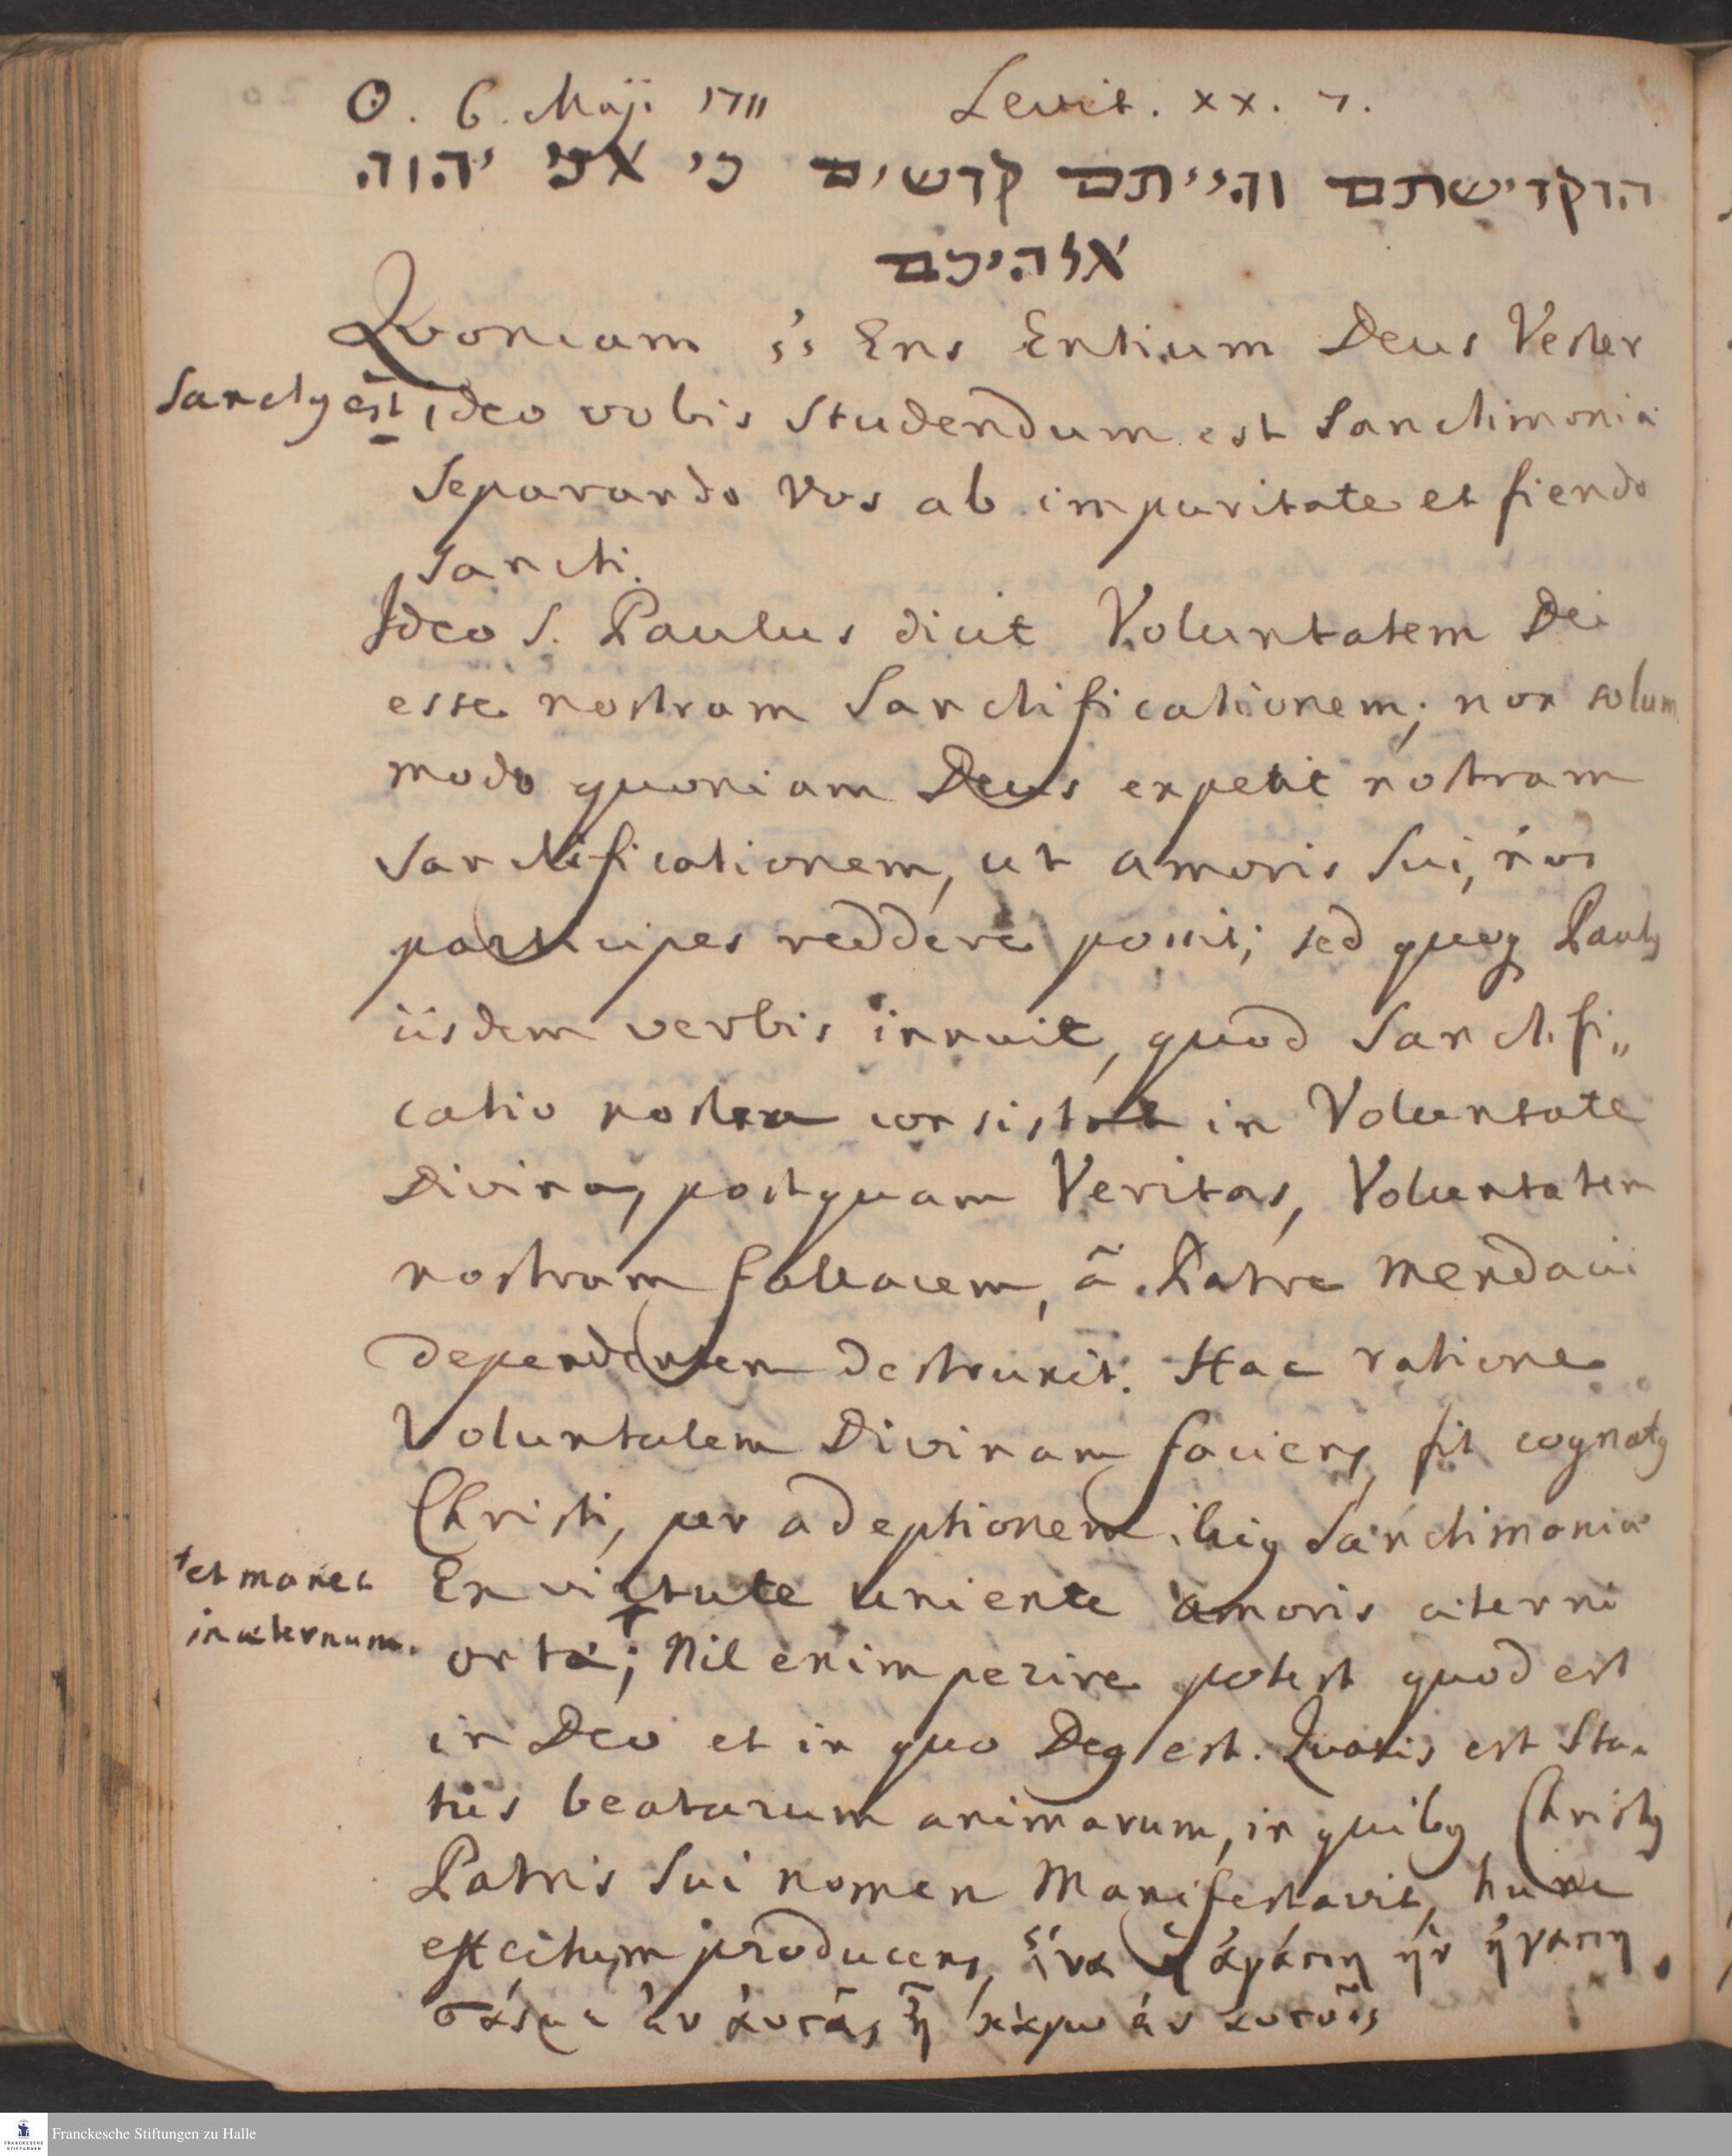 O. 6. Maji. 1711 Levit. XX. 7.
הוקדישתם והייתם קדשים כי אני יהוה
אלהיכם
Quoniam יי Ens Entium Deus Vester
Sanctus est ideo vobis studendum est Sanctimonia
Separando Vos ab impuritate et fiendo
Sancti.
Ideo S. Paulus dicit Voluntatem Dei
esse nostram Sanctificationem; non solum
modo quoniam Deus expetit nostram
Sanctificationem, ut amoris Sui, nos
participes reddere possit; sed quoq Paulus
iisdem verbis innuit, quod Sanctifi„
catio nostra consistat in Voluntate
Divina, postquam Veritas, Voluntatem
nostram fallacem, â Patre mendaci
dependentem destruxit. Hac ratione
Voluntatem Divinam faciens, fit cognatus
Christi, per adeptionem illius Sanctimonia
†et manet
in æternum.
Ex virtute uniente amoris æterni
orta†; Nil enim perire potest quod est
in Deo et in quo Deus est. Qualis est Sta„
tus beatarum animarum, in quibus Christus
Patris Sui nomen Manifestavit, hunc
effectum producens, ἵνα ἡ ἀγάπη ἣν ἠγαπη
σάς με ἐν αὐτοῖς ᾖ κἀγω ἐν αυτοῖς
Franckesche Stiftungen zu Halle
FRANCKESCHE
STIFTUNGEN